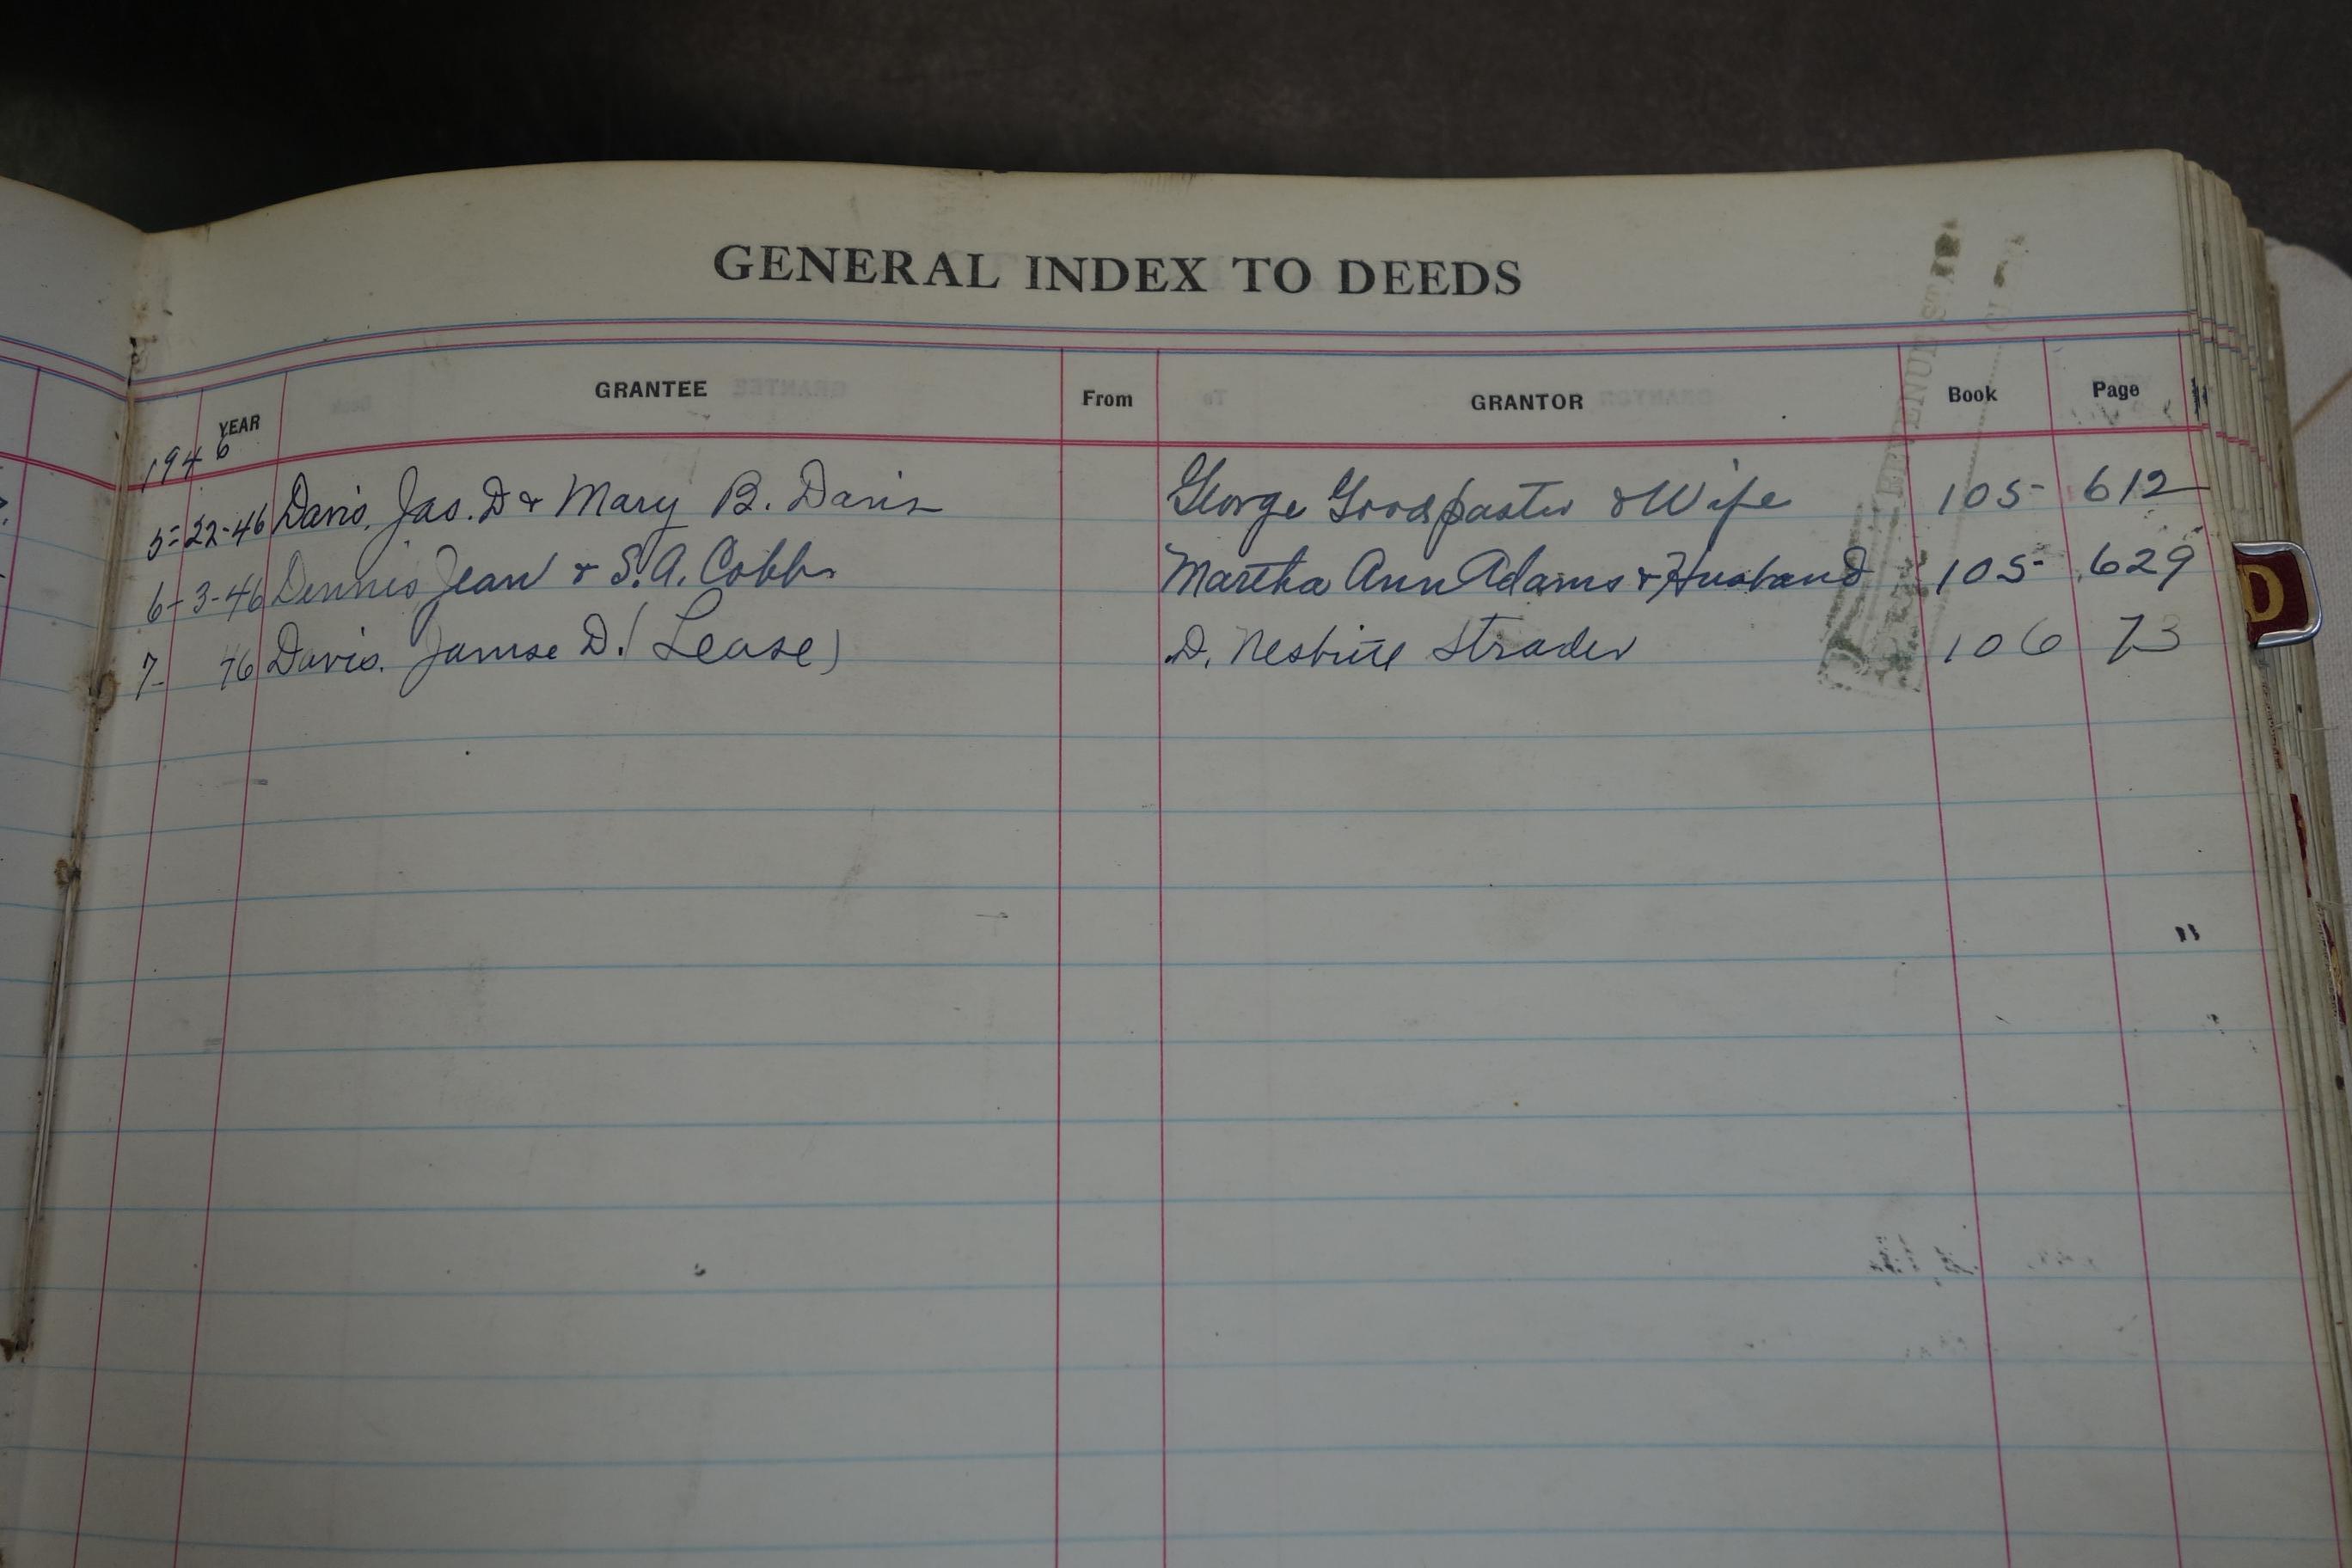 GENERAL INDEX TO DEEDS
YEAR GRANTEE From GRANTOR Book Page
1946
5-22-46 Davis, Jas. D & Mary B. Davis George Goodpaster & Wife 105 612
6-3-46 Dennis, Jean & S.A. Cobb Martha Ann Adams & Husband 105 629
7- 46 Davis, Jamse D. (Lease) D. Nesbitt Strader 106 73
D